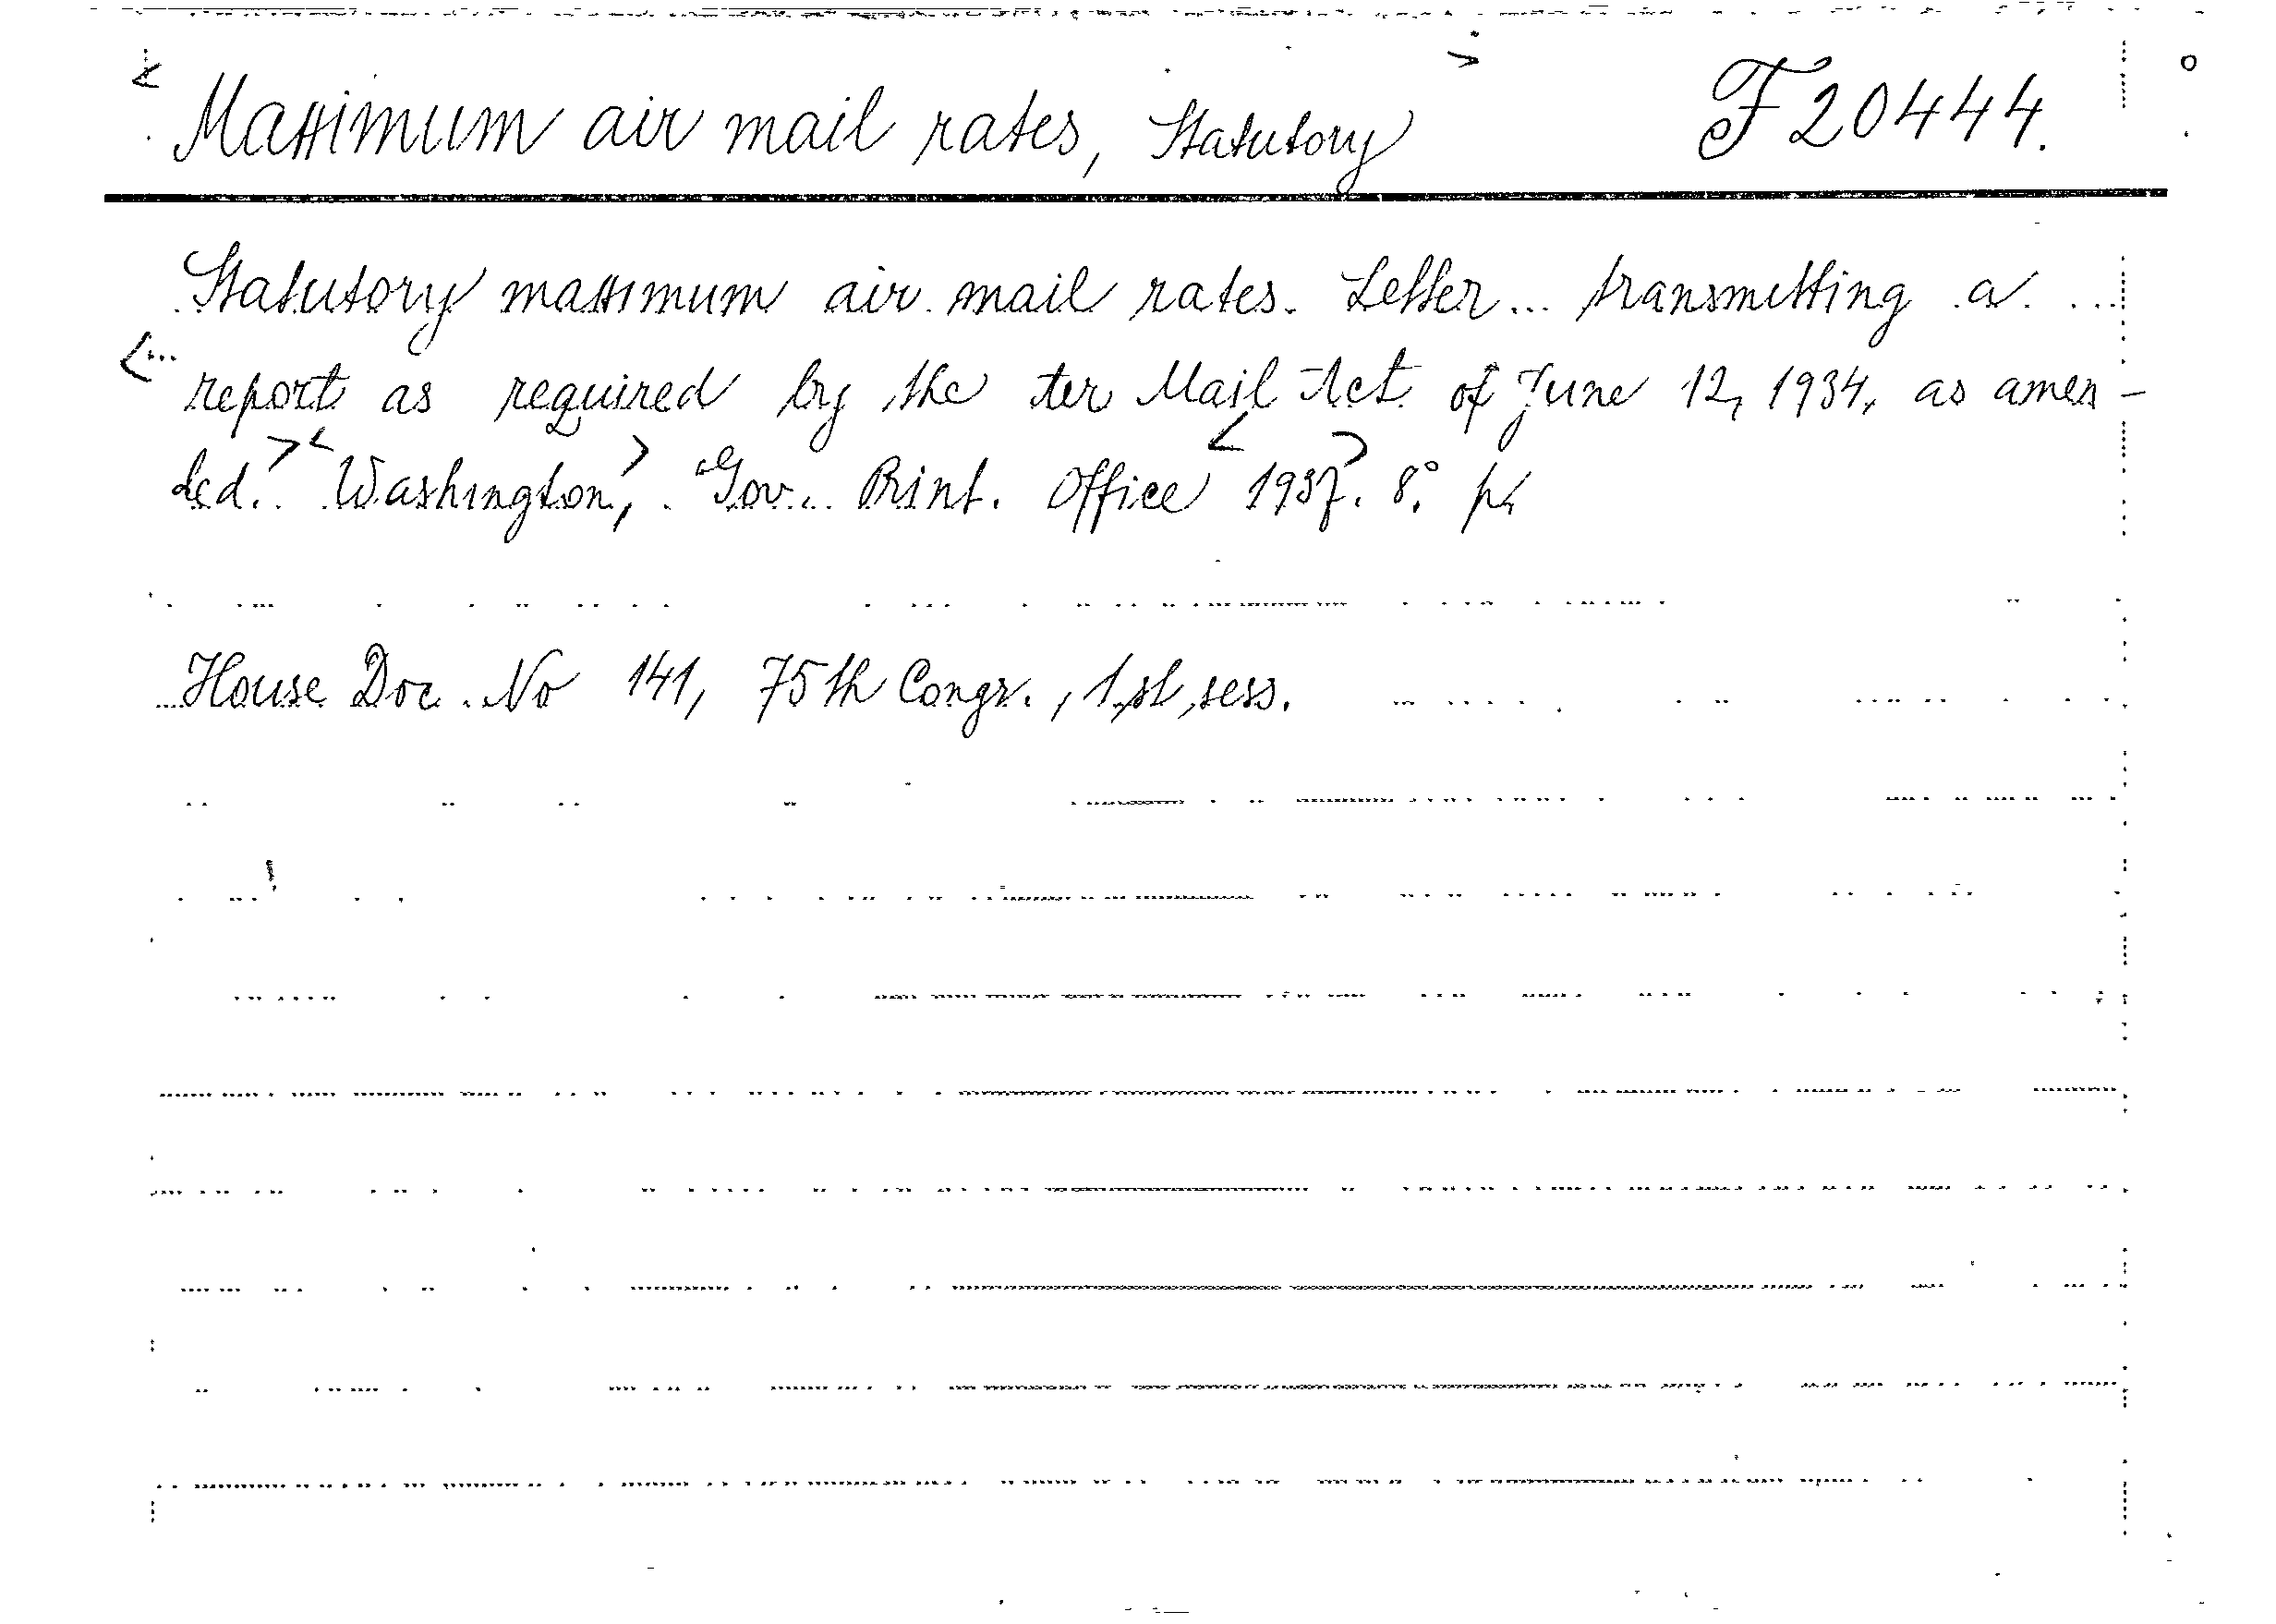 Maximum air mail rates, Statutory F 20444.
Statutory maximum air mail rates. Letter... transmitting a ...
report as required by the ter Mail Act of June 12, 1934, as amen-
ded. Washington, Gov. Print. Office 1937. 8° p.
House Doc. No 141, 75th Congr., 1.st, sess.